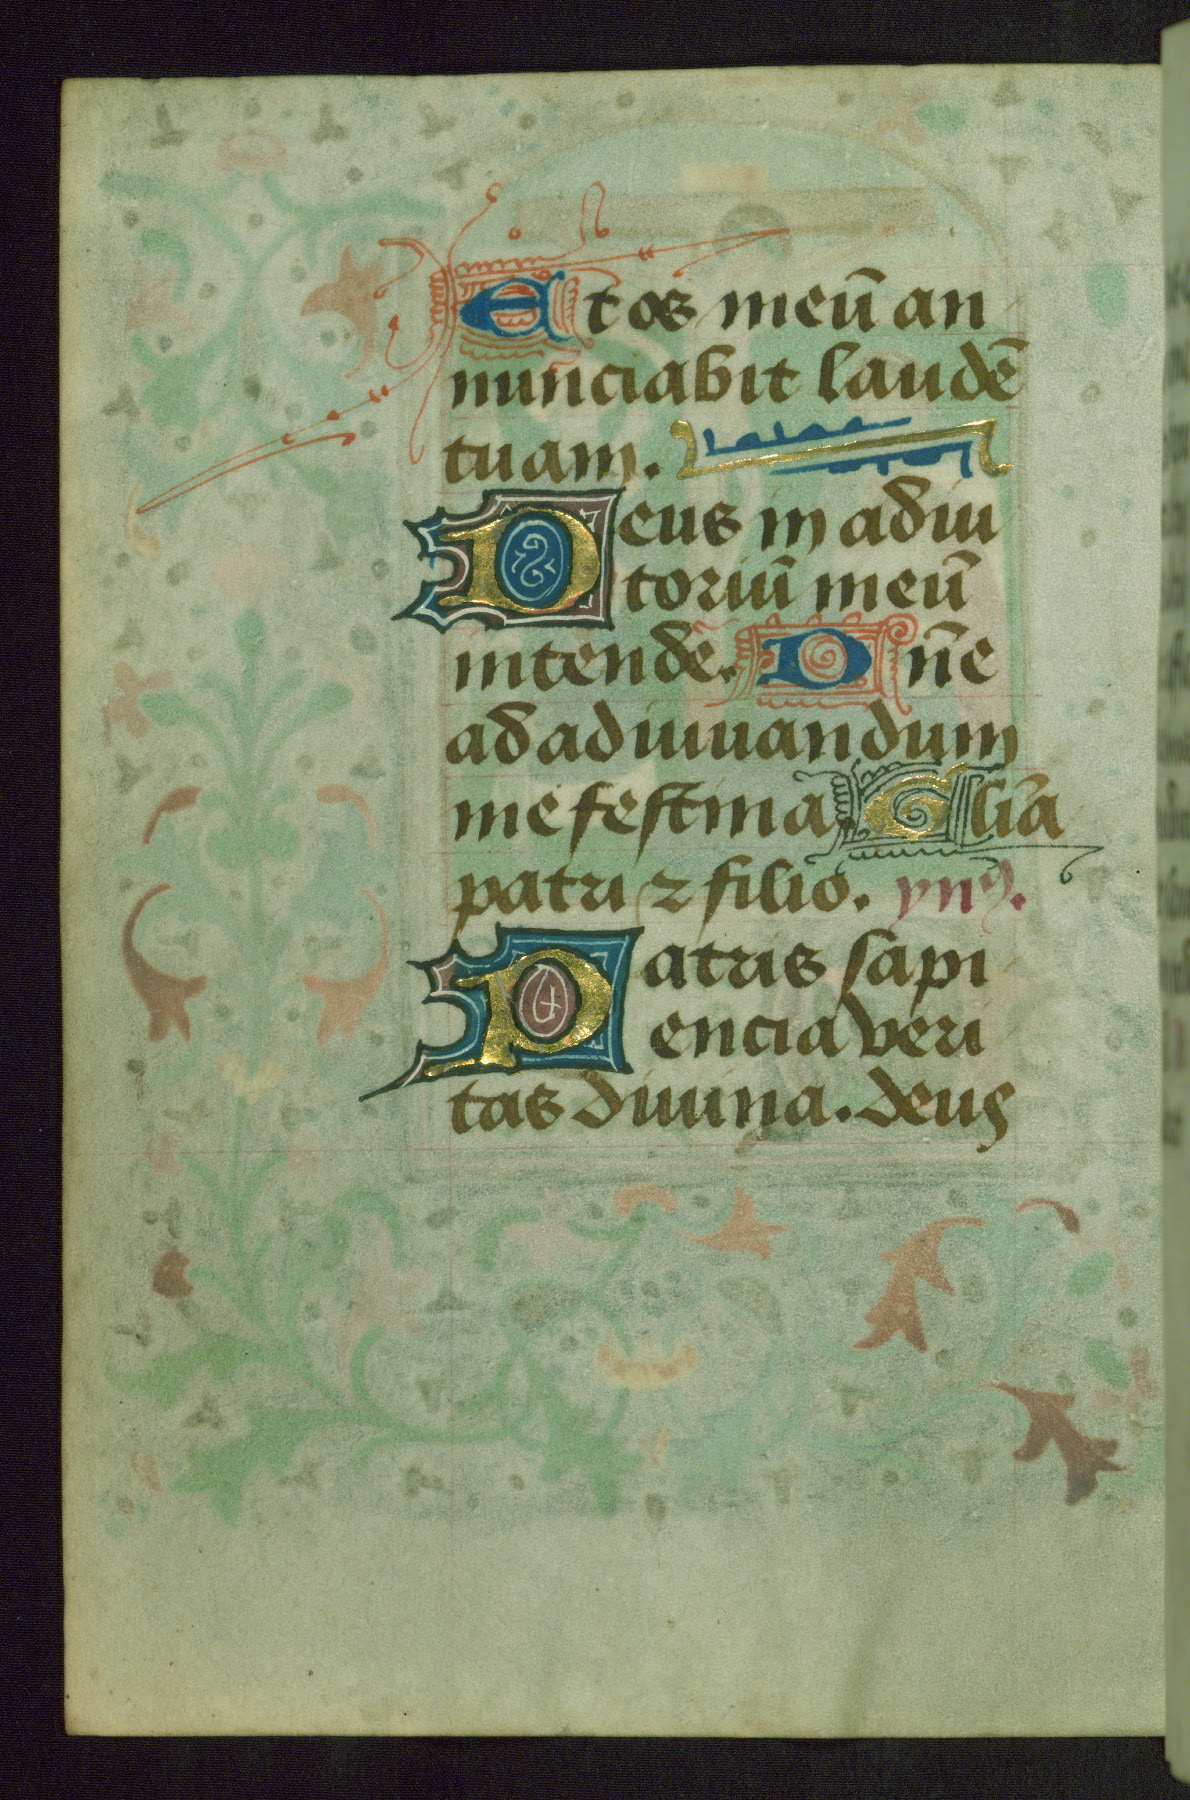 Et os meū an
nunciabit laudē
tuam.
Deus in adiu
toriū meū
intende. Dn̄e
ad adiuuandum
me festina Gl̄ia
patri ⁊ filio. ynꝰ.
Patris sapi
encia veri
tas diuina. deus